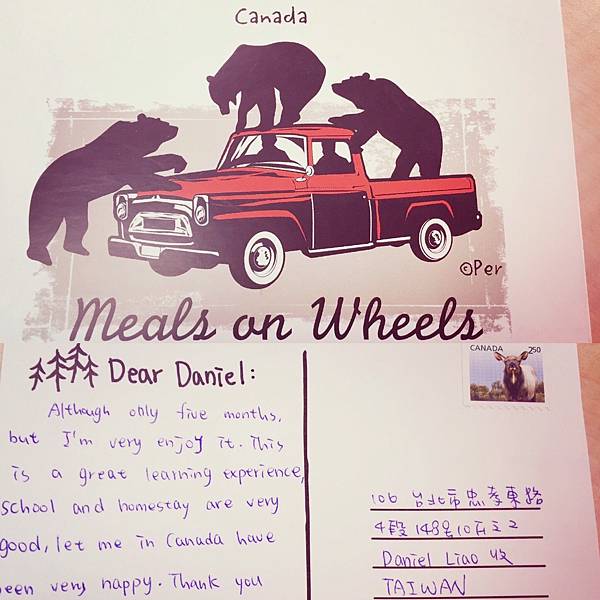 Canada
©Per
Meals on Wheels
Dear Daniel:
Although only five months,
but I'm very enjoy it. This
is a great learning experience,
school and homestay are very
good, let me in Canada have
been very happy. Thank you
CANADA 250
106 台北市忠孝東路
4段148号10F之2
Daniel Liao 收
TAIWAN